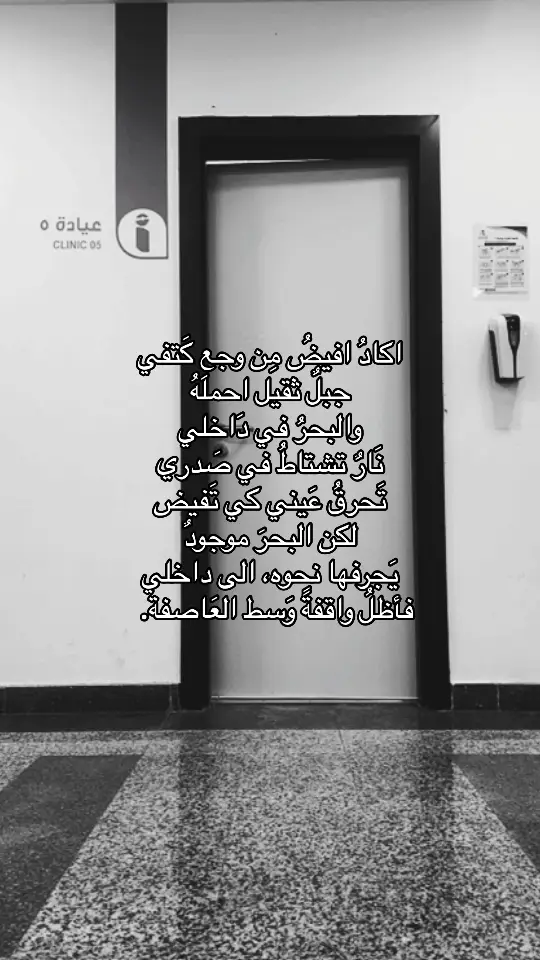 عيادة ٥
CLINIC 05
اكادُ افيضُ مِن وجع كَتفي
جبلٌ ثقيل احملَهُ
والبحرُ في دَاخلي
نَارٌ تشتاطُ في صَدري
تَحرقُ عَيني كي تَفيض
لكن البحرَ موجودُ
يَجرفها نحوه، الى داخلي
فأظلُ واقفةً وَسط العَاصفة.